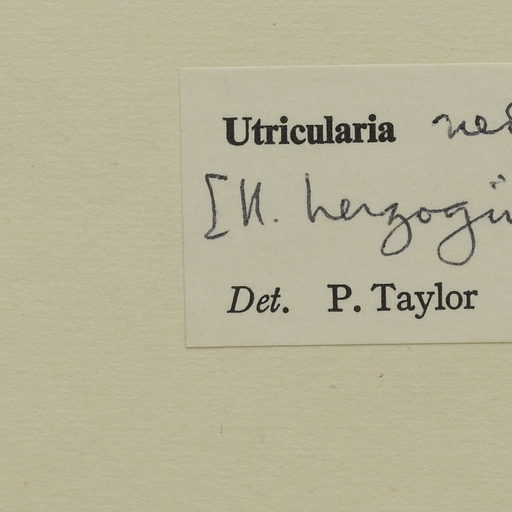 Utricularia
[U. herzogii
Det. P. Taylor